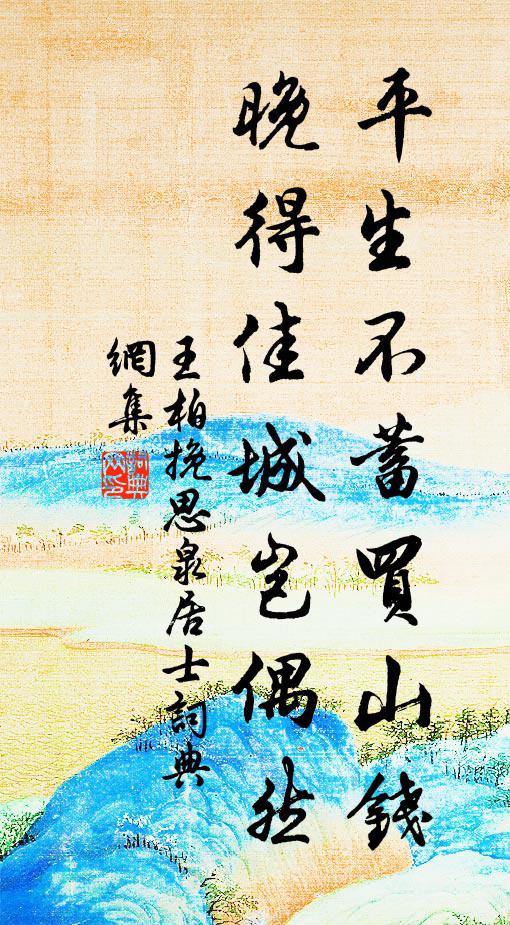 平生不蓄買山錢
晚得佳城豈偶然
王柏挽思泉居士詞典
網集